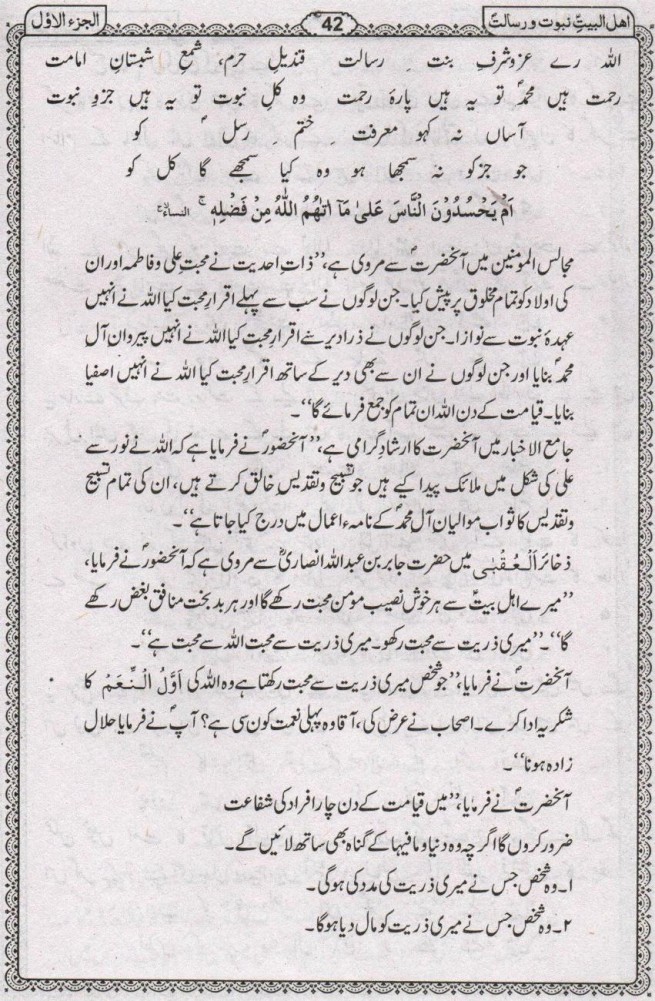 اهل البیتِ نبوت و رسالتؐ
42
الجزء الاوّل
اللہ رے عزوشرفِ بنت ِ رسالت قندیلِ حرم، شمعِ شبستانِ امامت
رحمت ہیں محمدؐ تو یہ ہیں پارۂ رحمت وہ کلِ نبوت تو یہ ہیں جزوِ نبوت
آساں نہ کہو معرفت ِ ختم ِ رسلؐ کو
جو جزکو نہ سمجھا ہو وہ کیا سمجھے گا کل کو
اَمْ یَحْسُدُوْنَ النَّاسَ عَلیٰ مَآ اٰتٰهُمُ اللّٰهُ مِنْ فَضْلِهٖ ۚ النساء
مجالس المومنین میں آنحضرتؐ سے مروی ہے،’’ذاتِ احدیت نے محبتِ علی و فاطمہ اور ان
کی اولاد کو تمام مخلوق پر پیش کیا۔ جن لوگوں نے سب سے پہلے اقرارِ محبت کیا اللہ نے انہیں
عہدۂ نبوت سے نوازا۔ جن لوگوں نے ذرا دیر سے اقرارِ محبت کیا اللہ نے انہیں پیروان آل
محمدؐ بنایا اور جن لوگوں نے ان سے بھی دیر کے ساتھ اقرارِ محبت کیا اللہ نے انہیں اصفیا
بنایا۔ قیامت کے دن اللہ ان تمام کو جمع فرمائے گا‘‘۔
جامع الاخبار میں آنحضرت کا ارشاد گرامی ہے،’’آنحضورؐ نے فرمایا ہے کہ اللہ نے نور سے
علی کی شکل میں ملائک پیدا کیے ہیں جو تسبیح و تقدیسِ خالق کرتے ہیں، ان کی تمام تسبیح
و تقدیس کا ثواب موالیان آل محمدؐ کے نامہء اعمال میں درج کیا جاتا ہے‘‘۔
ذخائر اَلْعُقْبٰی میں حضرت جابر بن عبداللہ انصاریؓ سے مروی ہے کہ آنحضورؐ نے فرمایا،
’’میرے اھل بیتؑ سے ھر خوش نصیب مومن محبت رکھے گا اور ھر بدبخت منافق بغض رکھے
گا‘‘۔’’میری ذریت سے محبت رکھو۔ میری ذریت سے محبت اللہ سے محبت ہے‘‘۔
آنحضرتؐ نے فرمایا،’’جو شخص میری ذریت سے محبت رکھتا ہے وہ اللہ کی اَوَّلُ النِّعَمْ کا
شکریہ ادا کرے۔ اصحاب نے عرض کی، آقا وہ پہلی نعمت کون سی ہے؟ آپؐ نے فرمایا حلال
زادہ ہونا‘‘۔
آنحضرتؐ نے فرمایا،’’میں قیامت کے دن چار افراد کی شفاعت
ضرور کروں گا اگرچہ وہ دنیا و مافیہا کے گناہ بھی ساتھ لائیں گے۔
۱۔وہ شخص جس نے میری ذریت کی مدد کی ہوگی۔
۲۔وہ شخص جس نے میری ذریت کو مال دیا ہوگا۔